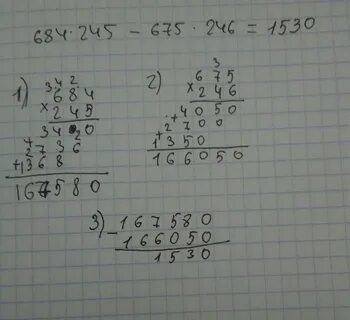 684 · 245 - 675 · 246 = 1530
1) 342
684
× 245
3420
+ 2736
+ 1368
167580
2) 3
675
× 246
+ 4050
+ 2700
1350
166050
3) - 167580
166050
1530